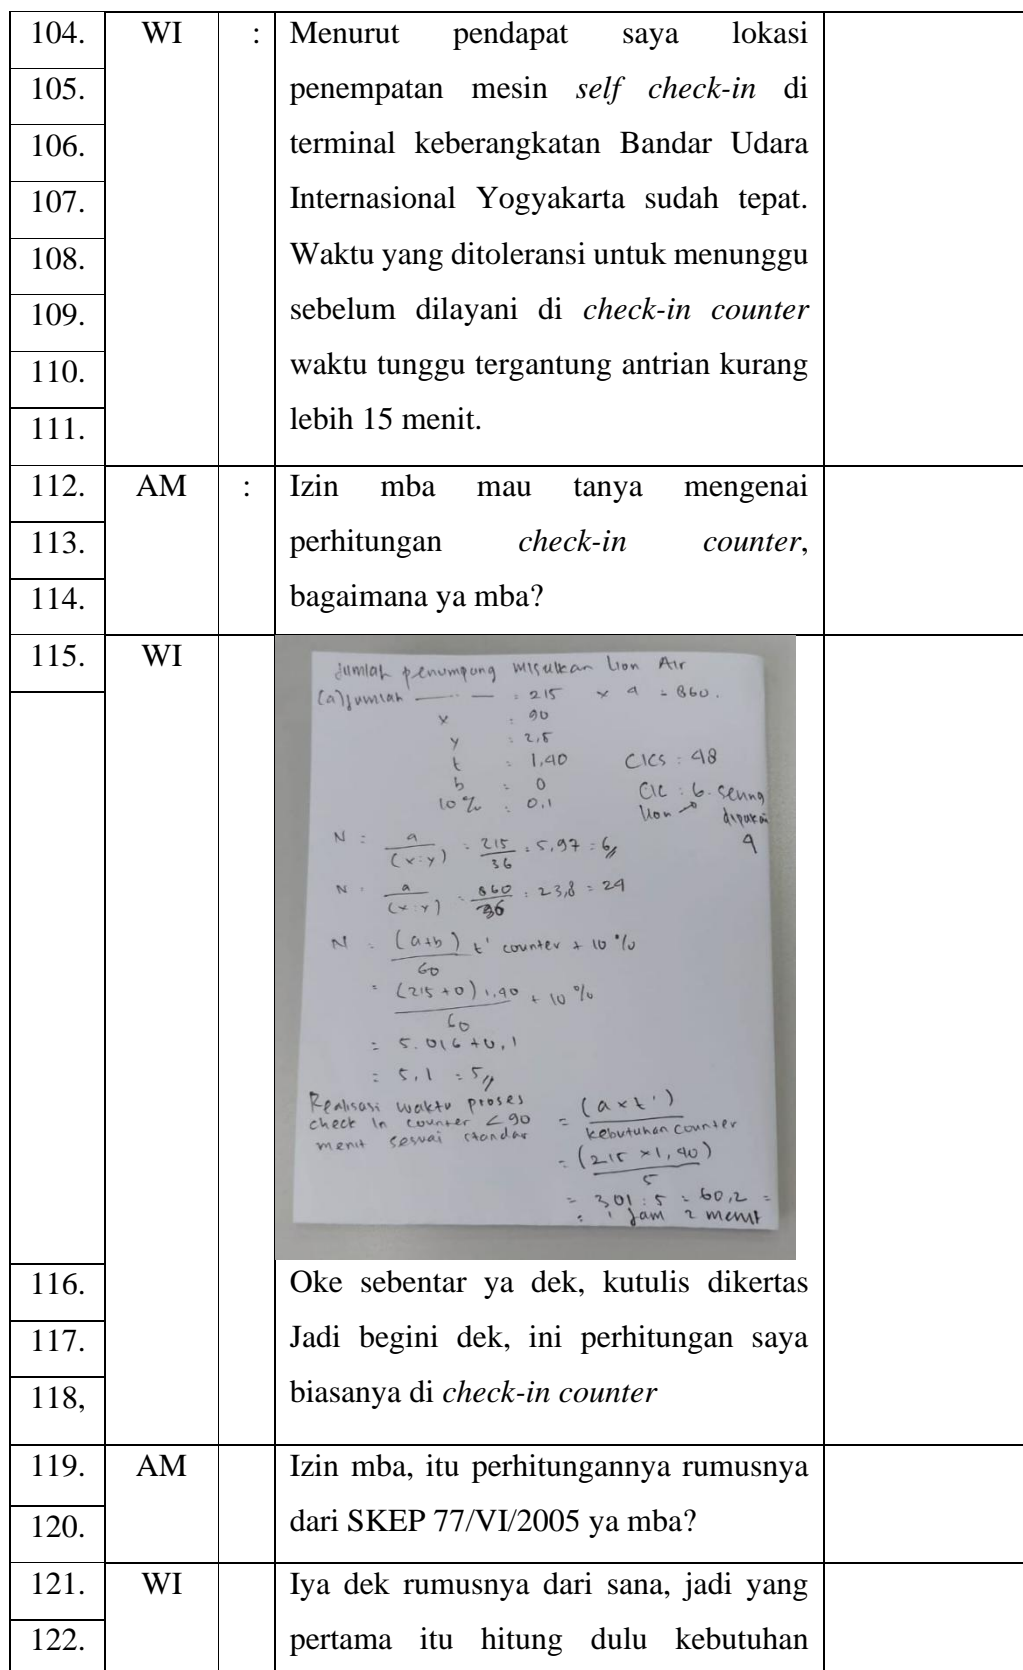 104. WI : Menurut pendapat saya lokasi
105. penempatan mesin self check-in di
106. terminal keberangkatan Bandar Udara
107. Internasional Yogyakarta sudah tepat.
108. Waktu yang ditoleransi untuk menunggu
109. sebelum dilayani di check-in counter
110. waktu tunggu tergantung antrian kurang
111. lebih 15 menit.
112. AM : Izin mba mau tanya mengenai
113. perhitungan check-in counter,
114. bagaimana ya mba?
115. WI
Jumlah penumpang misalkan Lion Air
(a) Jumlah — : 215 x 4 = 860.
x : 90
y : 2,5
t : 1,40
b : 0
10% : 0,1
CICS : 48
CIC : 6. sering
Lion → dipakai
4
N = a/(x:y) = 215/36 = 5,97 = 6//
N = a/(x:y) = 860/36 = 23,8 = 24
N = (a+b)/60 t' counter + 10%
= (215+0)1,40/60 + 10%
= 5.016 + 0,1
= 5,1 = 5//
Realisasi waktu proses
check in counter < 90
menit sesuai standar
= (a x t')/kebutuhan counter
= (215 x 1,40)/5
= 301 : 5 = 60,2 =
= 1 jam 2 menit
116. Oke sebentar ya dek, kutulis dikertas
117. Jadi begini dek, ini perhitungan saya
118, biasanya di check-in counter
119. AM Izin mba, itu perhitungannya rumusnya
120. dari SKEP 77/VI/2005 ya mba?
121. WI Iya dek rumusnya dari sana, jadi yang
122. pertama itu hitung dulu kebutuhan